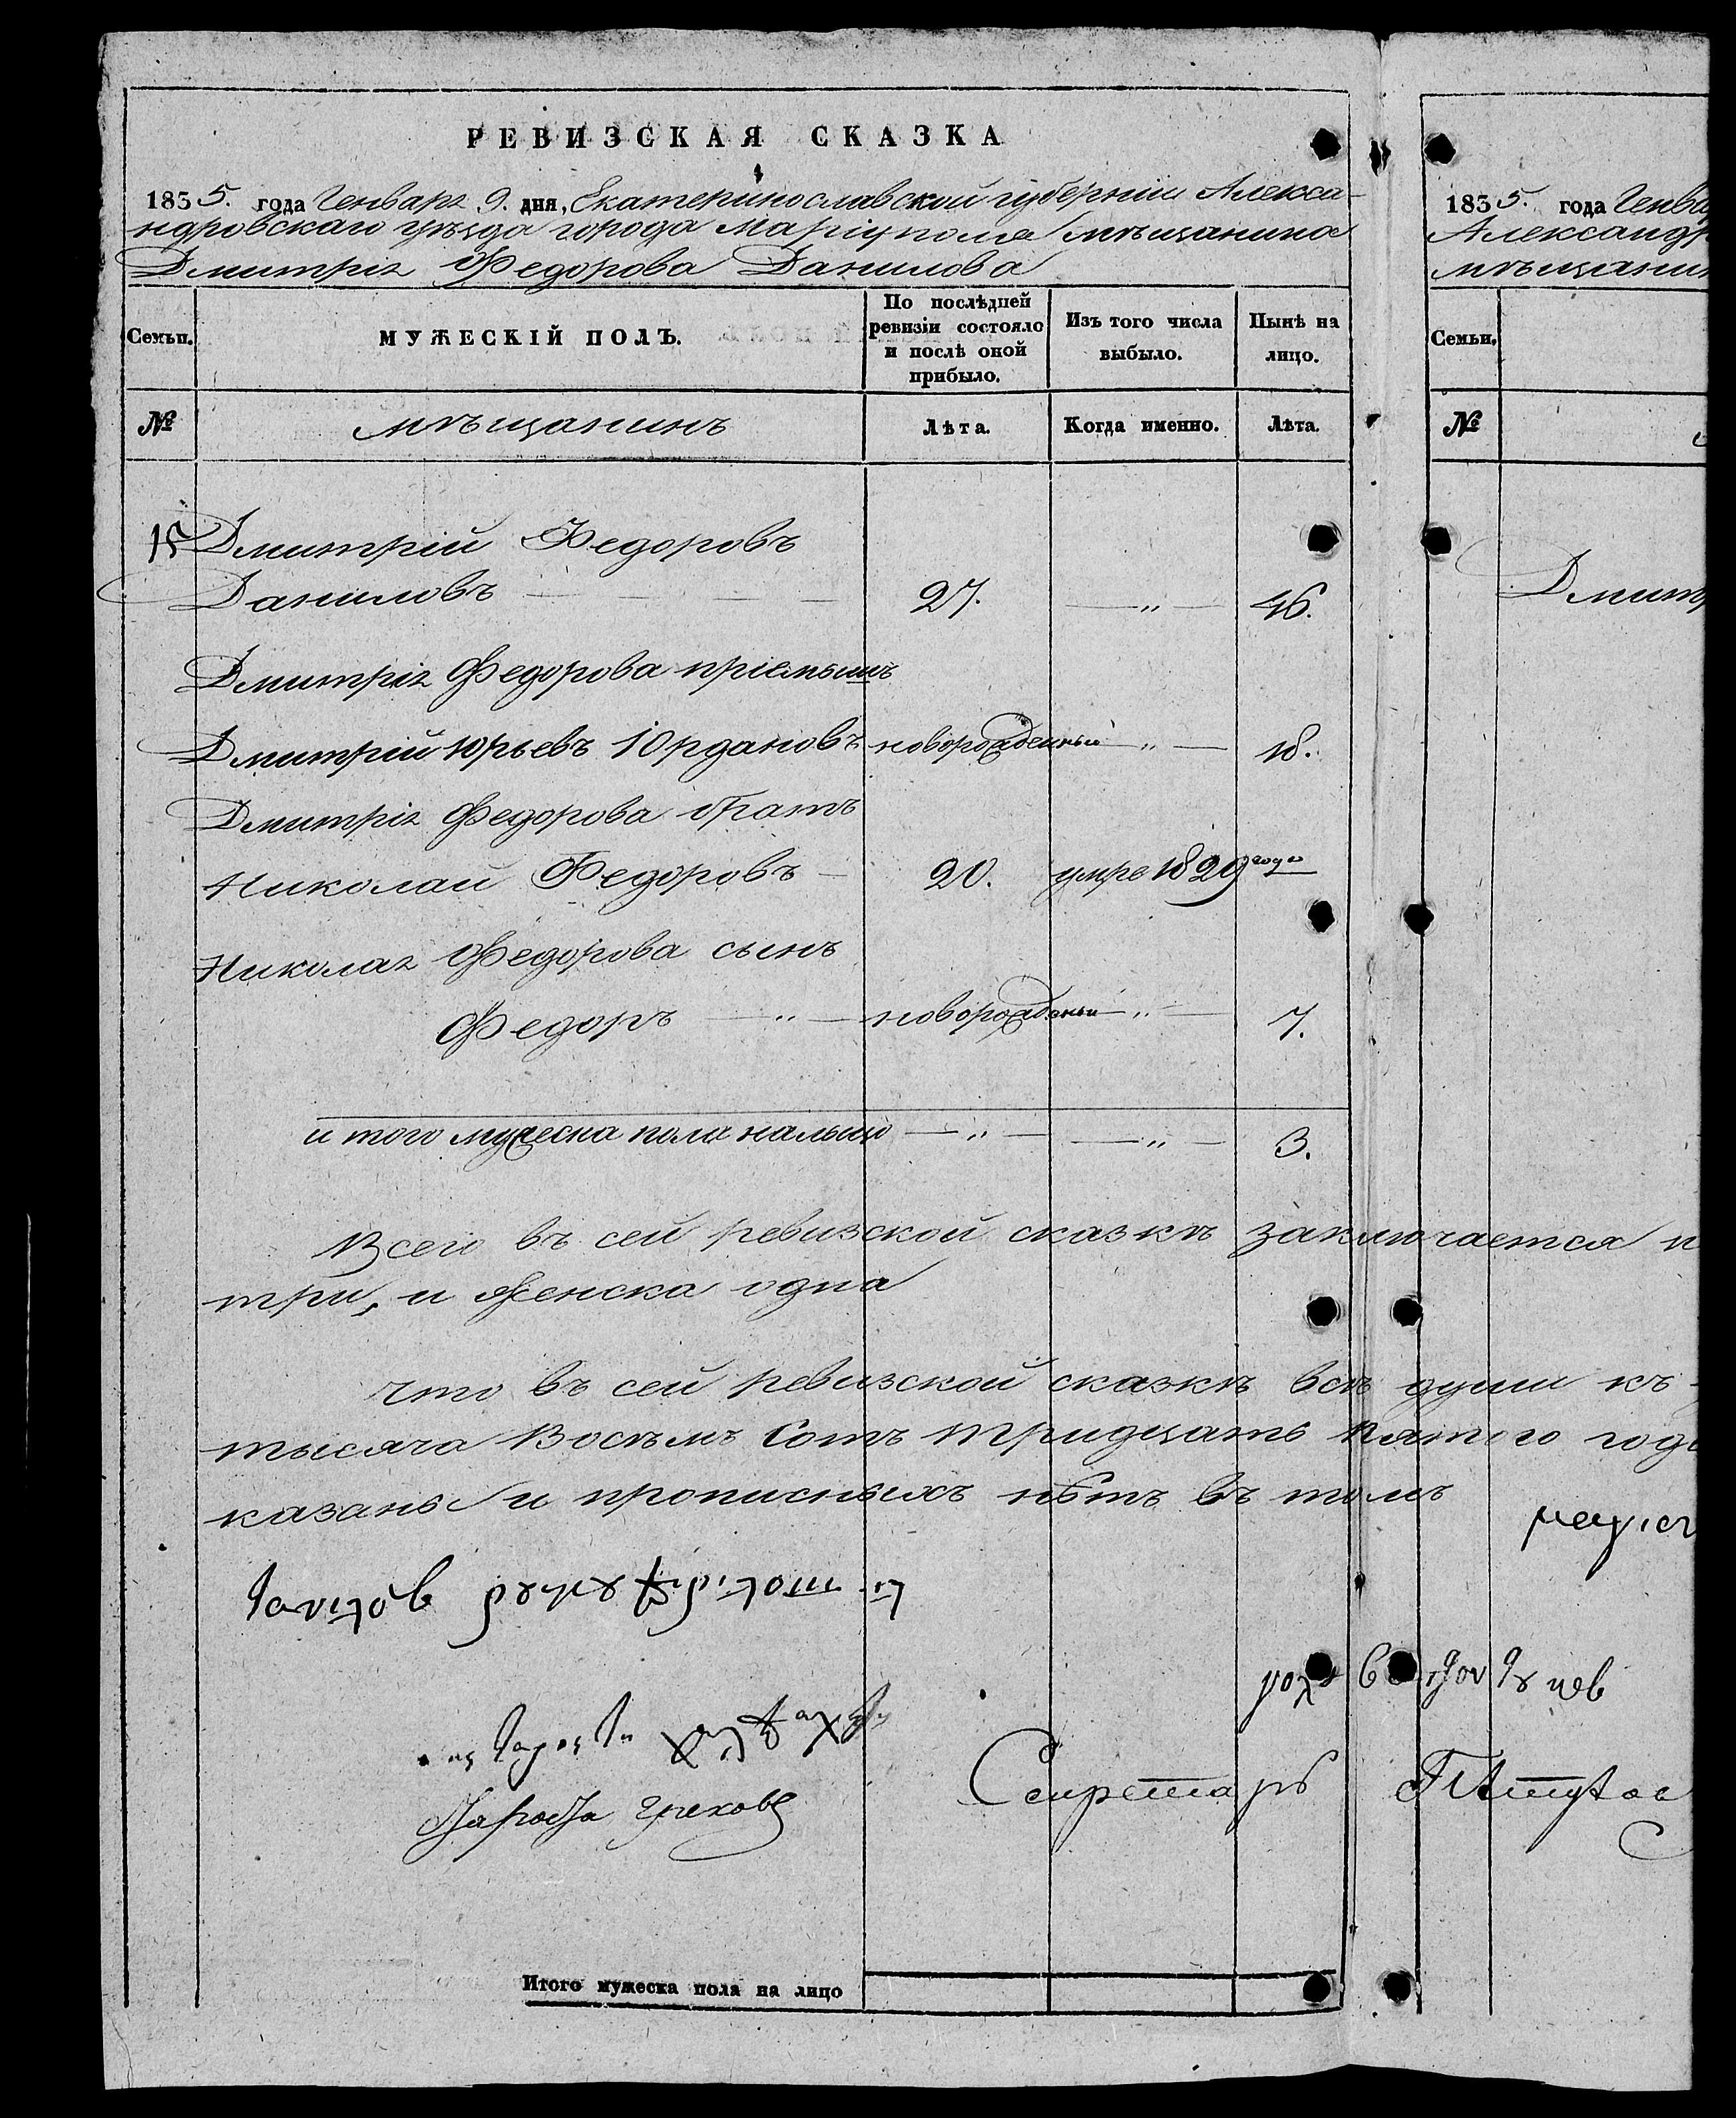 РЕВИЗСКАЯ СКАЗКА
1835. года Генваря 9. дня, Екатеринославской губерніи Алекса-
ндровскаго уѣзда города Маріуполя мѣщанина
Дмитрія Федорова Данилова
Семьи. МУЖЕСКІЙ ПОЛЪ. По послѣдней ревизіи состояло и послѣ оной прибыло. Изъ того числа выбыло. Нынѣ на лицо.
№ мѣщанинъ Лѣта. Когда именно. Лѣта.
15 Дмитрій Федоровъ
Даниловъ — — — — 27. — „ — 46.
Дмитрія Федорова пріемышъ
Дмитрій Юрьевъ Юрдановъ новорожденный — „ — 18.
Дмитрія Федорова братъ
Николай Федоровъ — 20. умре 1829 года —
Николая Федорова сынъ
Федоръ — „ — новорожденый — „ — 7.
и того мужеска пола налыцо — „ — — „ — 3.
Всего въ сей ревизской сказкѣ заключается
три, и женска одна
что въ сей ревизской сказкѣ всѣ души къ
тысяча Восѣмъ Сотъ тридцать Пятого
казаны и прописныхъ нѣтъ въ томъ
Староста Грековъ
Секретарь
Итого мужеска пола на лицо
1835. года
Семьи.
№